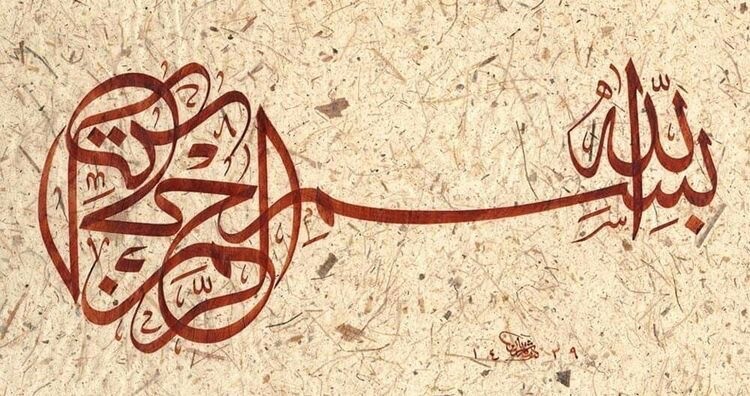 بِسْمِ اللّٰهِ الرَّحْمٰنِ الرَّحِيمِ
١٤٢٩